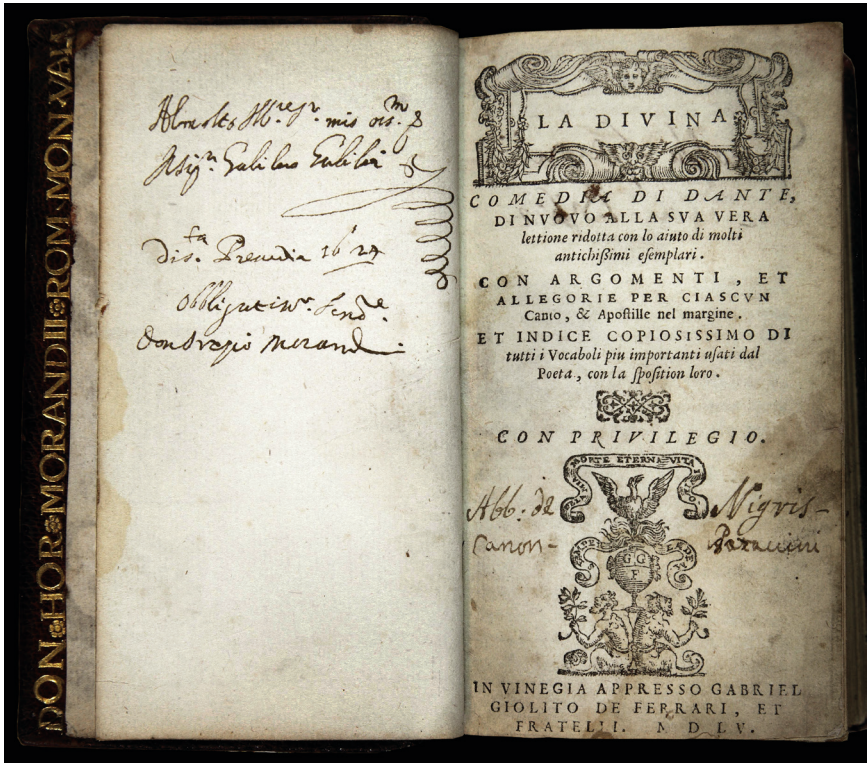 DON HOR MORANDII ROM MON VAL
Al molto Ill.re Sr. mio oss.mo
Il Sig.r Galileo Galilei
Di s.ta Prasedia 1624
Obbligatiss.o Ser.re
Don Orazio Morandi
LA DIVINA
COMEDIA DI DANTE,
DI NVOVO ALLA SVA VERA
lettione ridotta con lo aiuto di molti
antichißimi esemplari.
CON ARGOMENTI, ET
ALLEGORIE PER CIASCVN
Canto, & Apostille nel margine.
ET INDICE COPIOSISSIMO DI
tutti i Vocaboli piu importanti usati dal
Poeta, con la sposition loro.
CON PRIVILEGIO.
MORTE ETERNA VITA
Abb. de Nigris-
Canon-
SEMPER EADE
GGF
IN VINEGIA APPRESSO GABRIEL
GIOLITO DE FERRARI, ET
FRATELLI. M D LV.